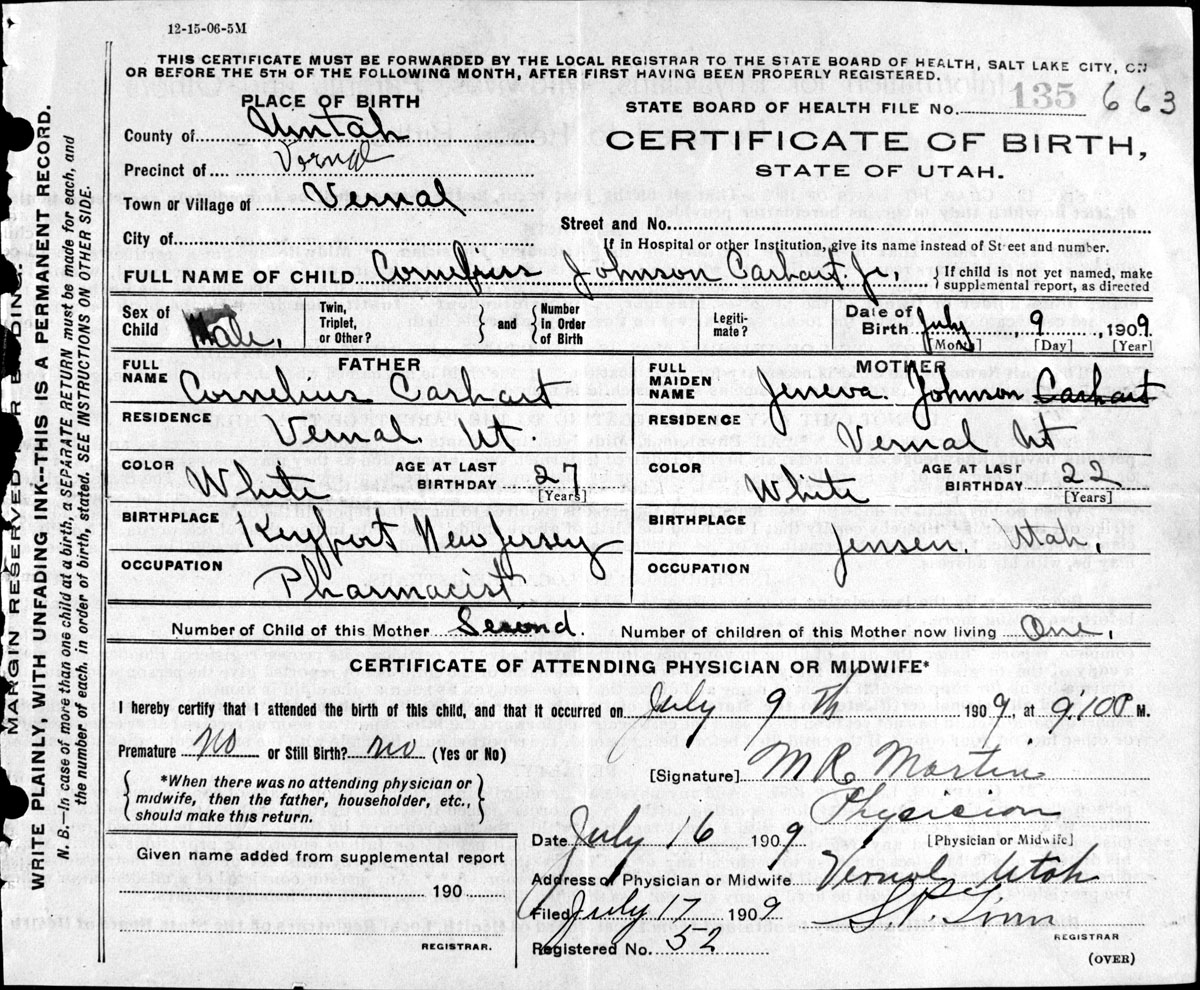 12-15-06-5M
THIS CERTIFICATE MUST BE FORWARDED BY THE LOCAL REGISTRAR TO THE STATE BOARD OF HEALTH, SALT LAKE CITY, ON
OR BEFORE THE 5TH OF THE FOLLOWING MONTH, AFTER FIRST HAVING BEEN PROPERLY REGISTERED.
PLACE OF BIRTH
STATE BOARD OF HEALTH FILE No. 135 663
County of Uintah
CERTIFICATE OF BIRTH,
Precinct of Vernal
STATE OF UTAH.
Town or Village of Vernal
Street and No.
City of
If in Hospital or other Institution, give its name instead of Street and number.
FULL NAME OF CHILD Cornelius Johnson Carhart. Jr, } If child is not yet named, make supplemental report, as directed
Sex of Child Male, Twin, Triplet, or Other? } and { Number in Order of Birth Legiti-mate? Date of Birth July 9, 1909.
[Month] [Day] [Year]
FATHER
MOTHER
FULL NAME Cornelius Carhart
FULL MAIDEN NAME Jeneva. Johnson Carhart
RESIDENCE Vernal. Ut
RESIDENCE Vernal Ut
COLOR White AGE AT LAST BIRTHDAY 27 [Years]
COLOR White AGE AT LAST BIRTHDAY 22 [Years]
BIRTHPLACE Keyport New Jersey
BIRTHPLACE Jensen. Utah,
OCCUPATION Pharmacist
OCCUPATION
Number of Child of this Mother Second. Number of children of this Mother now living One,
CERTIFICATE OF ATTENDING PHYSICIAN OR MIDWIFE*
I hereby certify that I attended the birth of this child, and that it occurred on July 9th 1909, at M.
Premature no or Still Birth? no (Yes or No)
[Signature] M R Martin
*When there was no attending physician or
midwife, then the father, householder, etc.,
should make this return.
Physician
[Physician or Midwife]
Date July 16 1909
Given name added from supplemental report
190
REGISTRAR.
Address of Physician or Midwife Vernal Utah
Filed July 17 1909
Registered No. 52
REGISTRAR
(OVER)
MARGIN RESERVED FOR BINDING.
WRITE PLAINLY, WITH UNFADING INK-THIS IS A PERMANENT RECORD.
N. B.—In case of more than one child at a birth, a SEPARATE RETURN must be made for each, and
the number of each. in order of birth, stated. SEE INSTRUCTIONS ON OTHER SIDE.